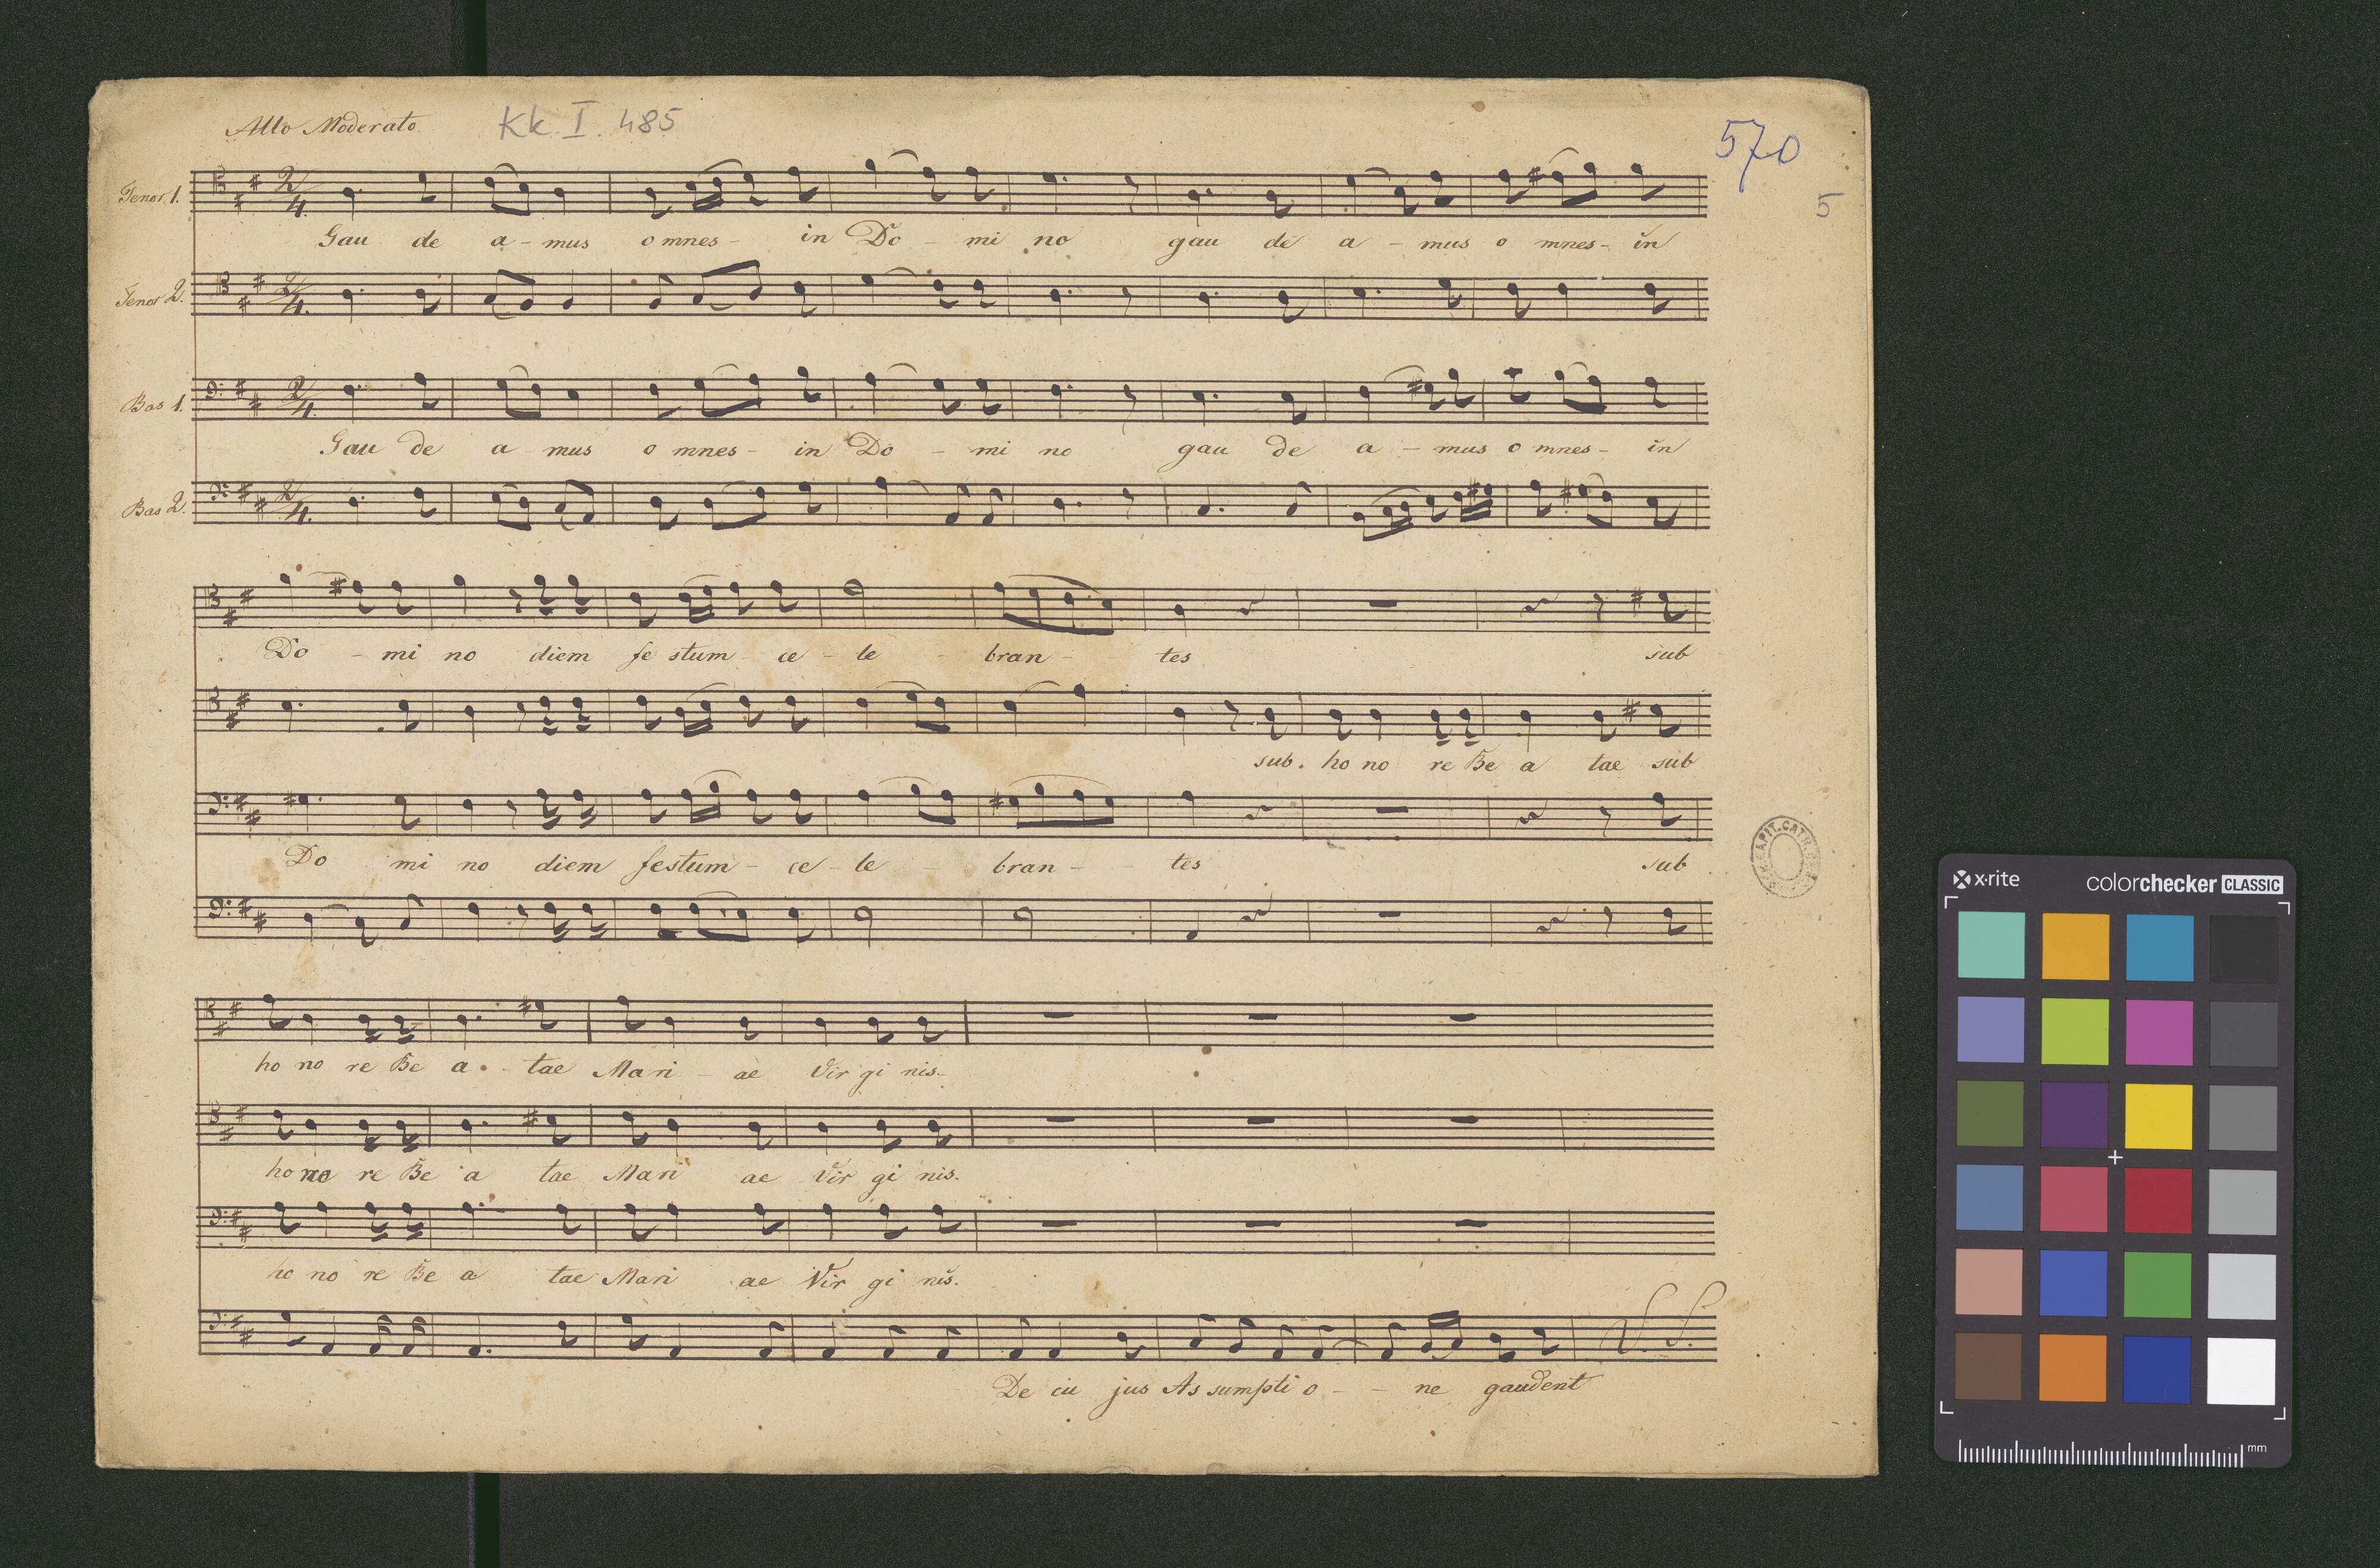 Allo Moderato.
Kk. I. 485
570
5
Tenor 1.
2/4.
Gau de a - mus o mnes - in Do - mi no gau de a - mus o mnes - in
Tenor 2.
2/4.
Bas 1.
2/4.
Gau de a mus o mnes - in Do - mi no gau de a - mus o mnes - in
Bas 2.
2/4.
Do - mi no diem fe stum ce - le - bran - tes sub
sub. ho no re Be a tae sub
Do mi no diem festum - ce - le - bran - tes sub
ho no re Be a - tae Mari - ae Vir gi nis.
ho no re Be a tae Mari ae Vir gi nis.
ho no re Be a tae Mari ae Vir gi nis.
De cu jus As sumpti o - - ne gaudent
V. S.
x·rite
colorchecker CLASSIC
mm